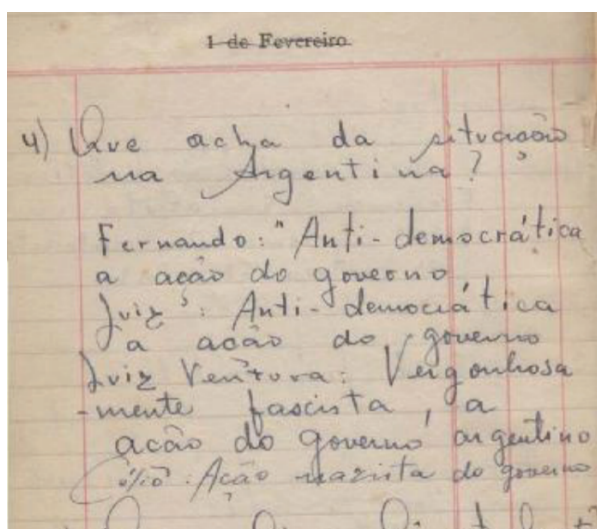 1 de Fevereiro.
4) Que acha da situação
na Argentina?
Fernando: "Anti-democrática
a ação do governo
Luiz: Anti-democrática
a acão do governo
Luiz Ventura: Vergonhosa
-mente fascista, a
acão do governo argentino
Ação nazista do governo